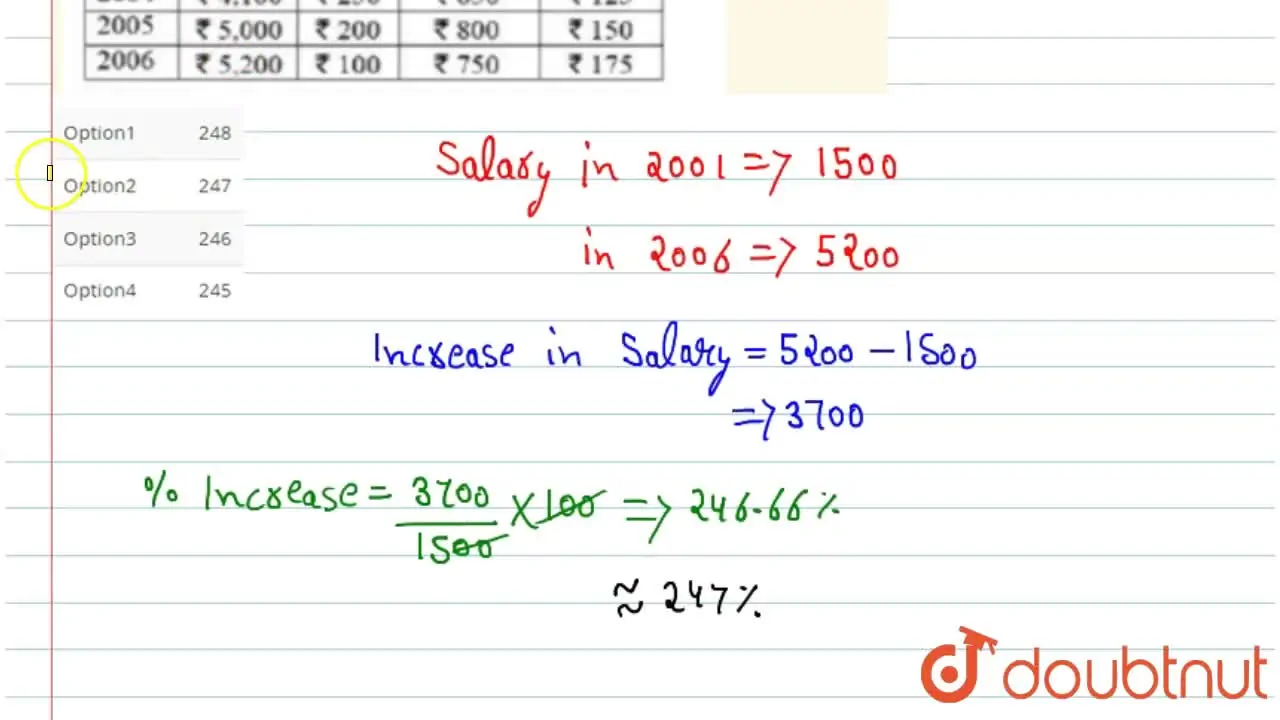 2005 ₹ 5,000 ₹ 200 ₹ 800 ₹ 150
2006 ₹ 5,200 ₹ 100 ₹ 750 ₹ 175
Option1 248
Option2 247
Option3 246
Option4 245
Salary in 2001 => 1500
in 2006 => 5200
Increase in Salary = 5200 - 1500
=> 3700
% Increase = 3700/1500 × 100 => 246.66%
≈ 247%
doubtnut